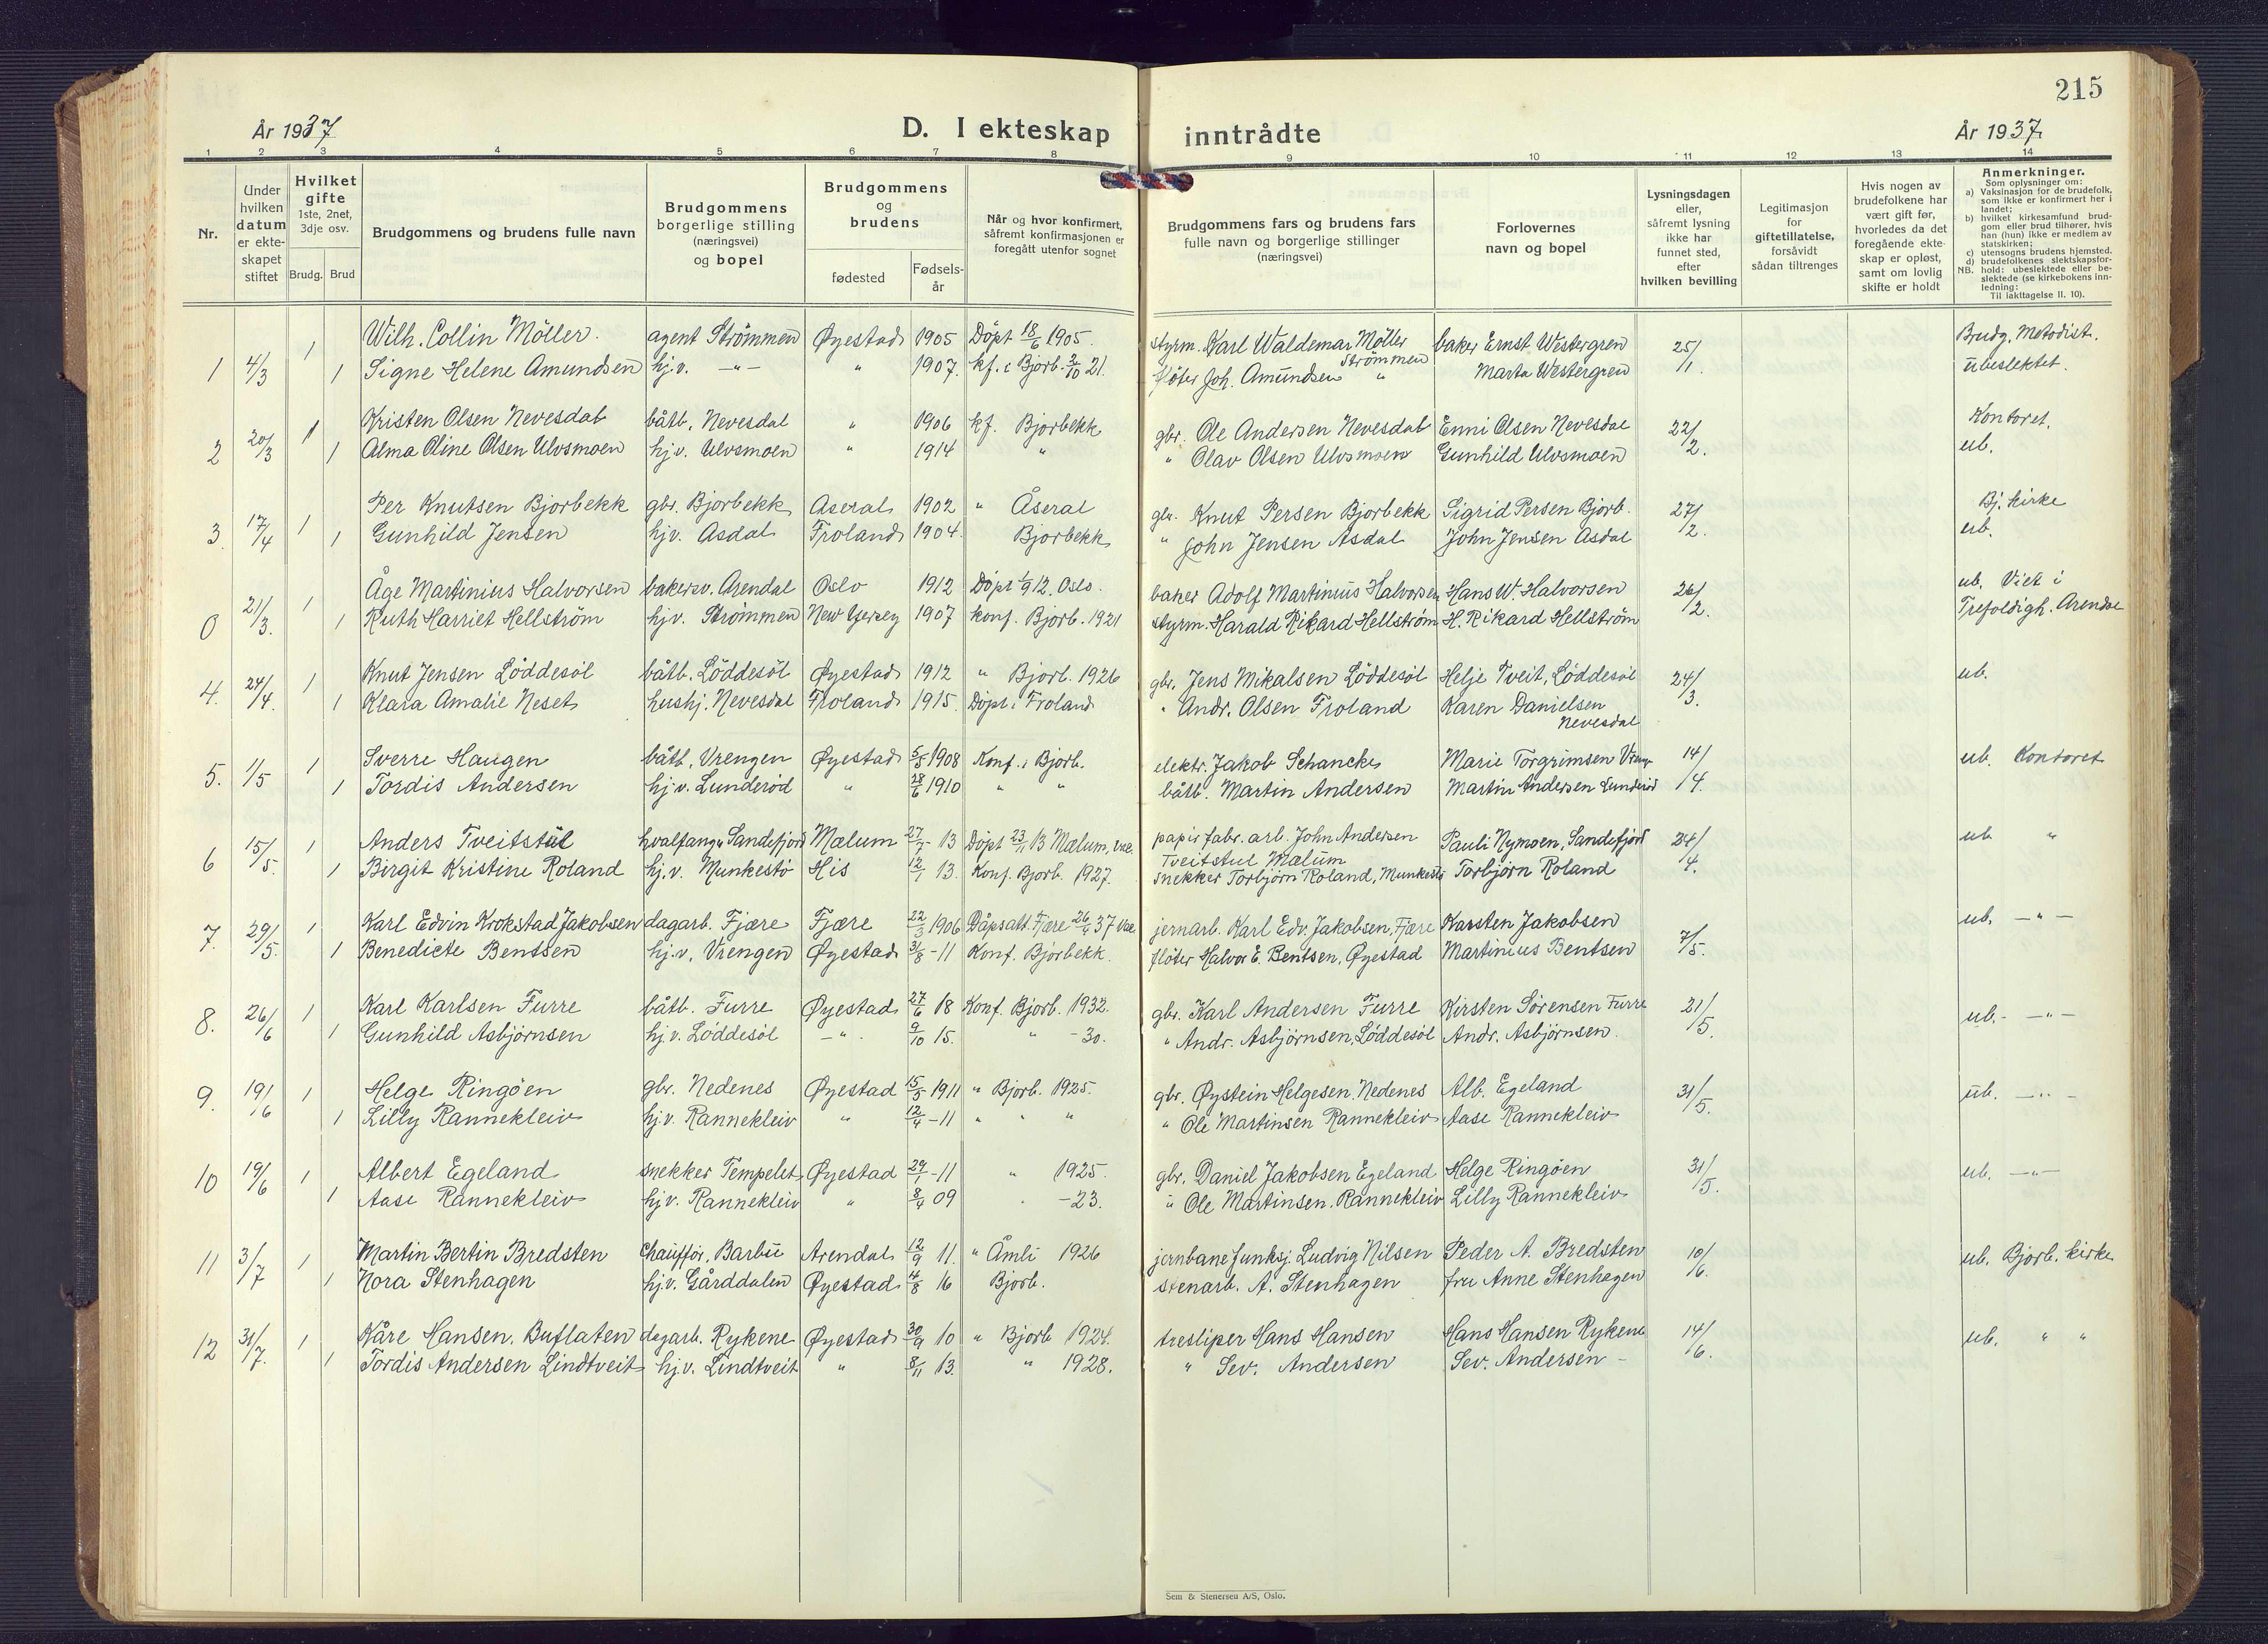 215
År 1937
D. I ekteskap inntrådte
År 1937
1 2 3 4 5 6 7 8 9 10 11 12 13 14
Nr.
Under hvilken datum er ekte- skapet stiftet
Hvilket gifte 1ste, 2net, 3dje osv.
Brudg. Brud
Brudgommens og brudens fulle navn
Brudgommens borgerlige stilling (næringsvei) og bopel
Brudgommens og brudens
fødested
Fødsels- år
Når og hvor konfirmert, såfremt konfirmasjonen er foregått utenfor sognet
Brudgommens fars og brudens fars fulle navn og borgerlige stillinger (næringsvei)
Forlovernes navn og bopel
Lysningsdagen eller, såfremt lysning ikke har funnet sted, efter hvilken bevilling
Legitimasjon for giftetillatelse, forsåvidt sådan tiltrenges
Hvis nogen av brudefolkene har vært gift før, hvorledes da det foregående ekte- skap er opløst, samt om lovlig skifte er holdt
Anmerkninger.
Som oplysninger om:
a) Vaksinasjon for de brudefolk, som ikke er konfirmert her i landet;
b) hvilket kirkesamfund brud- gom eller brud tilhører, hvis han (hun) ikke er medlem av statskirken;
c) utensogns brudens hjemsted.
d) brudefolkenes slektskapsfor- hold: ubeslektede eller be- slektede (se kirkebokens inn- ledning:
NB. Til iakttagelse II. 10).
1 4/3 1 Wilh. Collin Möller. agent Strömmen Øyestad 1905 Döpt 18/6 1905. styrm. Karl Waldemar Møller Strömmen baker Ernst Westergren 25/1 Brudg. Metodist.
1 Signe Helene Amundsen hj.v. -"- " 1907. kf. i Bjorb. 2/10 21. fløter Joh. Amundsen " Marta Westergren ubeslektet.
2 20/3 1 Kristen Olsen Nevesdal båtb. Nevesdal " 1906 kf. Bjorbekk gbr. Ole Andersen Nevesdal Enni Olsen Nevesdal 22/2. Kontoret.
1 Alma Oline Olsen Ulvsmoen hj.v. Ulvsmoen " 1914 " " Olav Olsen Ulvsmoen Gunhild Ulvsmoen ub.
3. 17/4 1 Per Knutsen Bjorbekk gbr. Bjorbekk Aseral 1902 " Åseral gbr. Knut Persen Bjorbekk Sigrid Persen Bjorb. 27/2. Bj. kirke
1 Gunhild Jensen hj.v. Asdal Froland 1904. Bjorbekk " John Jensen Asdal John Jensen Asdal ub.
0 21/3. 1 Åge Martinius Halvorsen bakersv. Arendal Oslo 1912 Döpt 1/9 12. Oslo. baker Adolf Martinius Halvorsen Hans W. Halvorsen 26/2. ub. Viet i
1 Ruth Harriet Hellström hj.v. Strömmen New Yersey 1907 konf. Bjorb. 1921 styrm. Harald Rikard Hellström H. Rikard Hellström Trefoldigh. Arendal
4. 24/4. 1 Knut Jensen Löddesöl båtb. Löddesöl Øyestad 1912 " Bjorb. 1926 gbr. Jens Mikalsen Löddesöl Helje Tveit, Löddesöl 24/3. ub.
1 Klara Amalie Neset hushj. Nevesdal Froland 1915. Döpt i Froland " Andr. Olsen Froland Karen Danielsen Nevesdal
5. 1/5 1 Sverre Haugen båtb. Vrengen Øyestad 5/5 1908 Konf. i Bjorb. elektr. Jakob Schancke Marie Torgrimsen 14/4. ub. Kontoret
1 Tordis Andersen hj.v. Lunderöd " 28/6 1910 " " båtb. Martin Andersen Martin Andersen Lunderöd
6 15/5. 1 Anders Tveitstul hvalfang. Sandefjord Mælum 27/7 13 Döpt 23/11 13 Mælum, vac. papir fabr. arb. John Andersen Tveitstul Mælum Pauli Nymoen, Sandefjord 24/4. ub "
1 Birgit Kristine Roland hj.v. Munkestö His 12/1 13. Konf. Bjorb. 1927. snekker Torbjörn Roland, Munkestö Torbjörn Roland
7. 29/5. 1 Karl Edvin Krokstad Jakobsen dagarb. Fjære Fjære 22/3 1906 Dåpsatt. Fjære 26/4 37 vac. jernarb. Karl Edv. Jakobsen, Fjære Karsten Jakobsen 7/5. ub. -"-
1 Benedicte Bentsen hj.v. Vrengen Øyestad 31/8 -11 Konf. Bjorbekk. fløter Halvor E. Bentsen, Øyestad Martinius Bentsen
8. 26/6 1 Karl Karlsen Furre båtb. Furre Øyestad 27/6 18 Konf. Bjorb. 1932. gbr. Karl Andersen Furre Kirsten Sørensen Furre 21/5. ub. -"-
1 Gunhild Asbjörnsen hj.v. Löddesöl -"- 9/10 15. " -30. " Andr. Asbjörnsen, Löddesöl Andr. Asbjörnsen.
9. 19/6 1 Helge Ringöen gbr. Nedenes Øyestad 15/5 1911 " Bjorb. 1925. gbr. Øystein Helgesen Nedenes Alb. Egeland 31/5. ub. -"-
1 Lilly Rannekleiv hj.v. Rannekleiv " 12/4 -11 " " " " Ole Martinsen Rannekleiv Aase Rannekleiv
10 19/6 1 Albert Egeland snekker Tempelet Øyestad 29/1 -11 " 1925. gbr. Daniel Jakobsen Egeland Helge Ringöen 31/5. ub. -"-
1 Aase Rannekleiv hj.v. Rannekleiv " 8/4 09 " -23. " Ole Martinsen. Rannekleiv Lilly Rannekleiv
11 3/7 1 Martin Bertin Bredsten Chaufför, Barbu Arendal 12/9 11. " Åmli 1926 jernbane funksj. Ludvig Nilsen Peder A. Bredsten 10/6. ub. Bjorb. kirke
1 Nora Stenhagen hj.v. Gårddalen Øyestad 4/8 16 Bjorb. stenarb. A. Stenhagen fru Anne Stenhagen
12 31/7. 1 Kåre Hansen. Buflaten dagarb. Rykene Øyestad 30/9 10 " Bjorb 1924. tresliper Hans Hansen Hans Hansen Rykene 14/6. ub. " "
1 Tordis Andersen Lindtveit hj.v. Lindtveit " 8/11 13. " 1928. " Sev. Andersen Sev. Andersen -
Sem & Stenersen A/S, Oslo.